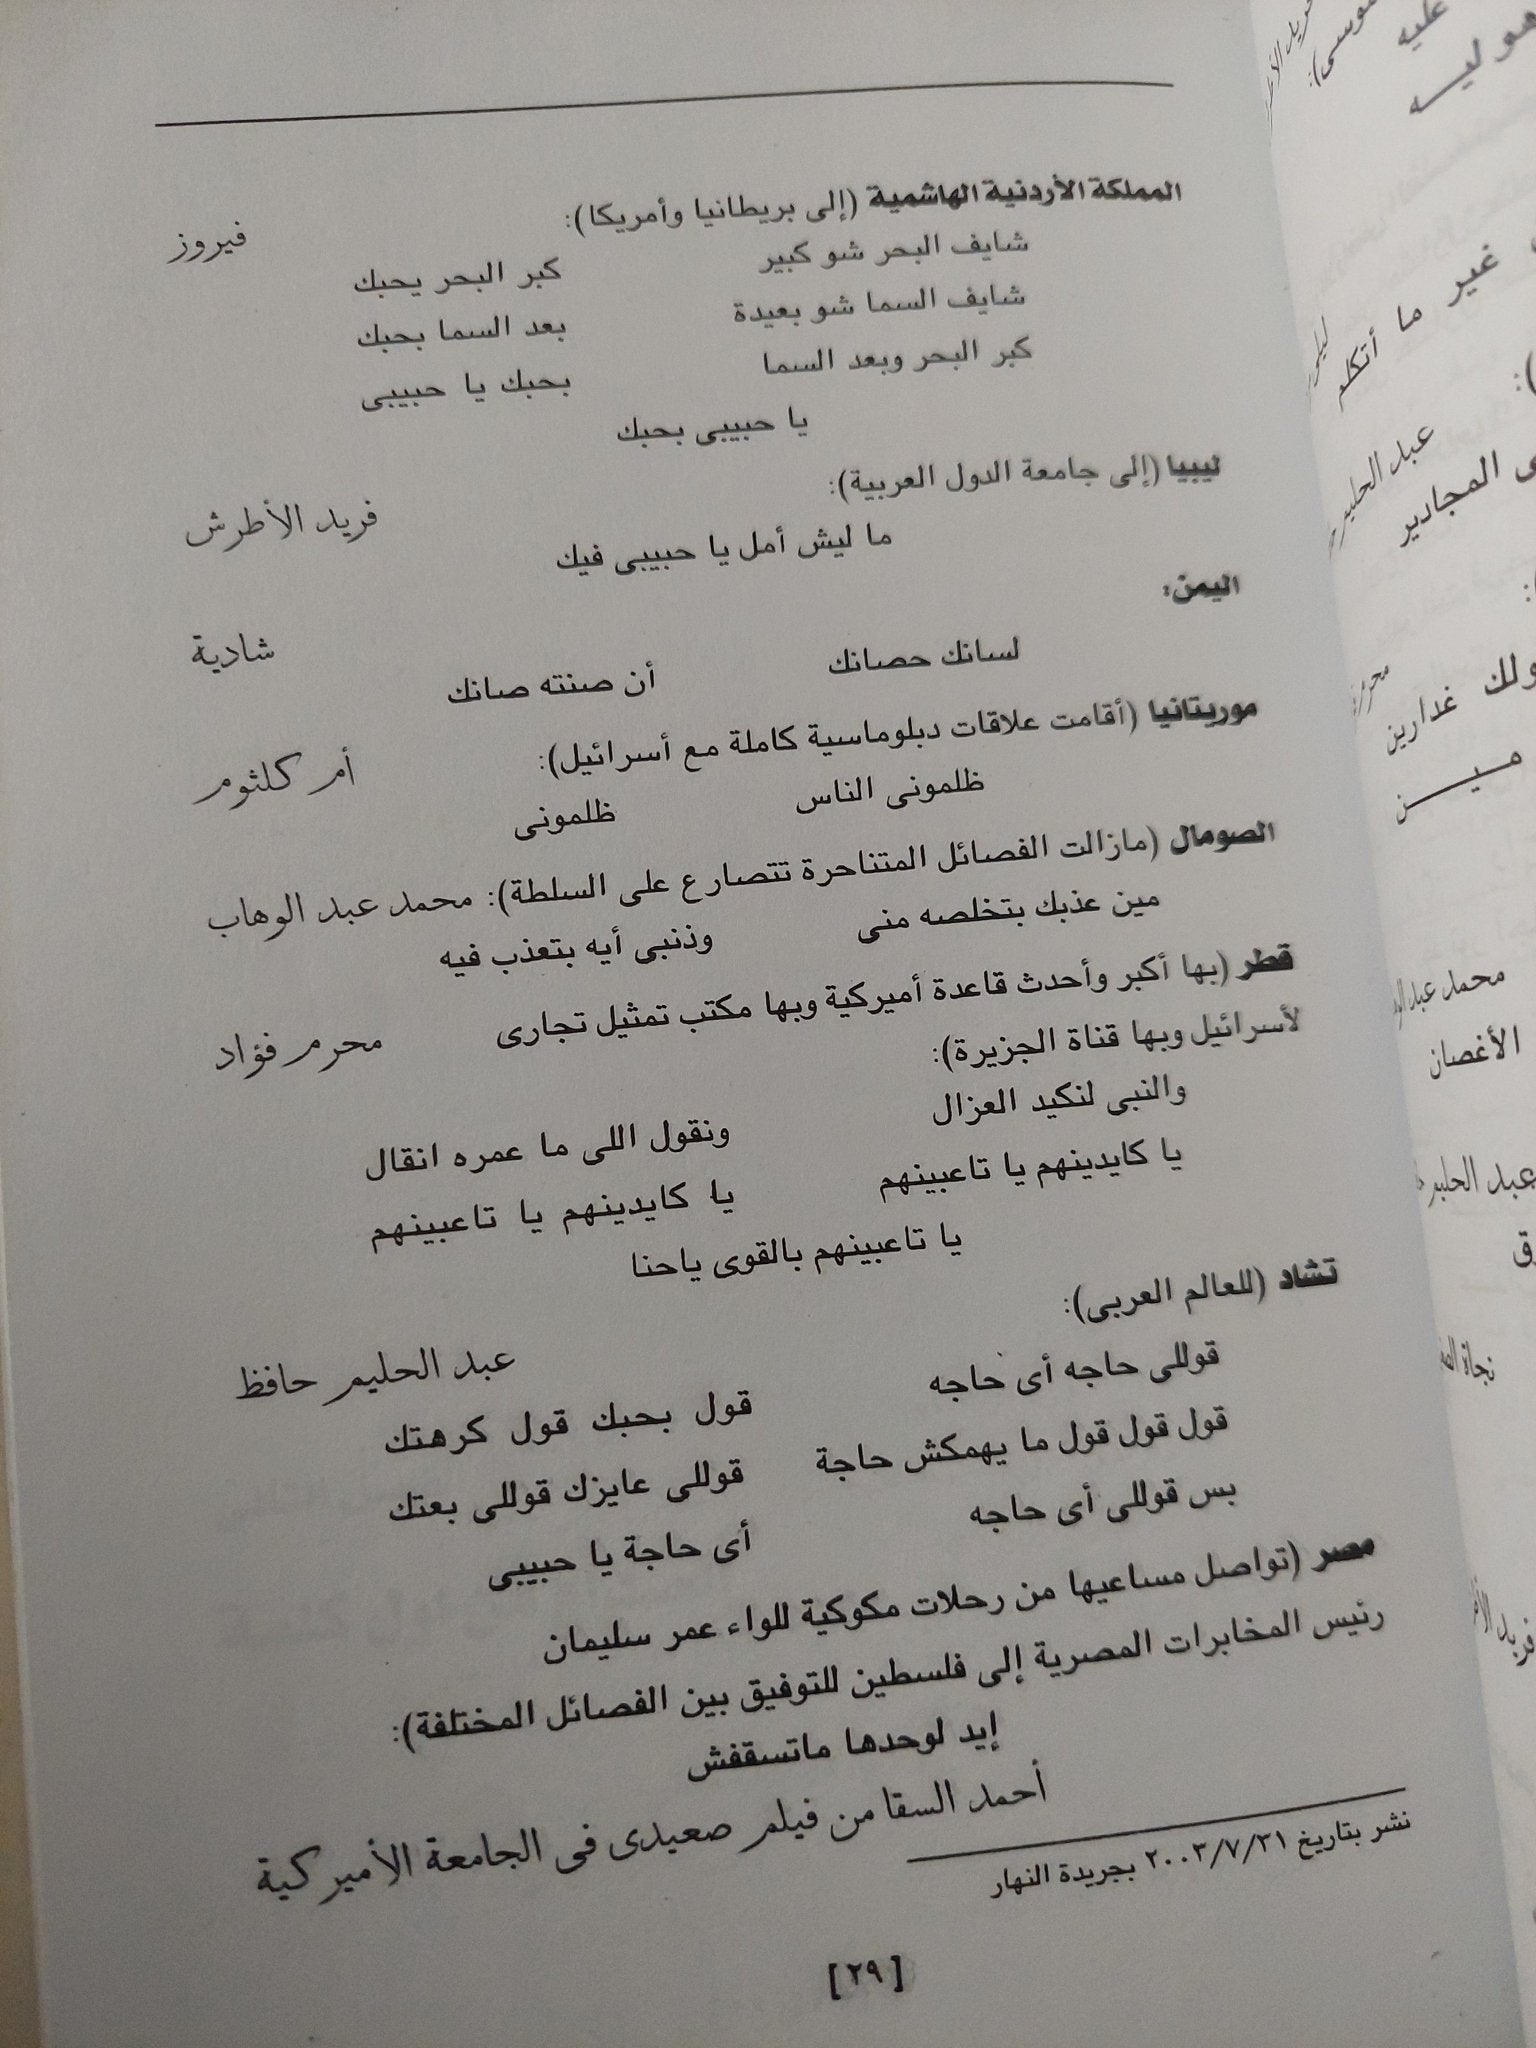 المملكة الأردنية الهاشمية (إلى بريطانيا وأمريكا): فيروز
شايف البحر شو كبير كبر البحر يحبك
شايف السما شو بعيدة بعد السما بحبك
كبر البحر وبعد السما بحبك يا حبيبى
يا حبيبى بحبك
ليبيا (إلى جامعة الدول العربية): فريد الأطرش
ما ليش أمل يا حبيبى فيك
اليمن: شادية
لسانك حصانك أن صنته صانك
موريتانيا (أقامت علاقات دبلوماسية كاملة مع أسرائيل): أم كلثوم
ظلمونى الناس ظلمونى
الصومال (مازالت الفصائل المتناحرة تتصارع على السلطة): محمد عبد الوهاب
مين عذبك بتخلصه منى وذنبى أيه بتعذب فيه
قطر (بها أكبر وأحدث قاعدة أميركية وبها مكتب تمثيل تجارى
لأسرائيل وبها قناة الجزيرة): محرم فؤاد
والنبى لنكيد العزال ونقول اللى ما عمره انقال
يا كايدينهم يا تاعبينهم يا كايدينهم يا تاعبينهم
يا تاعبينهم بالقوى ياحنا
تشاد (للعالم العربى): عبد الحليم حافظ
قوللى حاجه أى حاجه قول بحبك قول كرهتك
قول قول قول ما يهمكش حاجة قوللى عايزك قوللى بعتك
بس قوللى أى حاجه أى حاجة يا حبيبى
مصر (تواصل مساعيها من رحلات مكوكية للواء عمر سليمان
رئيس المخابرات المصرية إلى فلسطين للتوفيق بين الفصائل المختلفة):
إيد لوحدها ماتسقفش
أحمد السقا من فيلم صعيدى فى الجامعة الأميركية
نشر بتاريخ ٢٠٠٣/٧/٣١ بجريدة النهار
[٢٩]
عليه
غير ما أتكلم
عبد الحليم
المجادير
غدارين
محمد عبد
الأغصان
عبد الحليم
نجاة